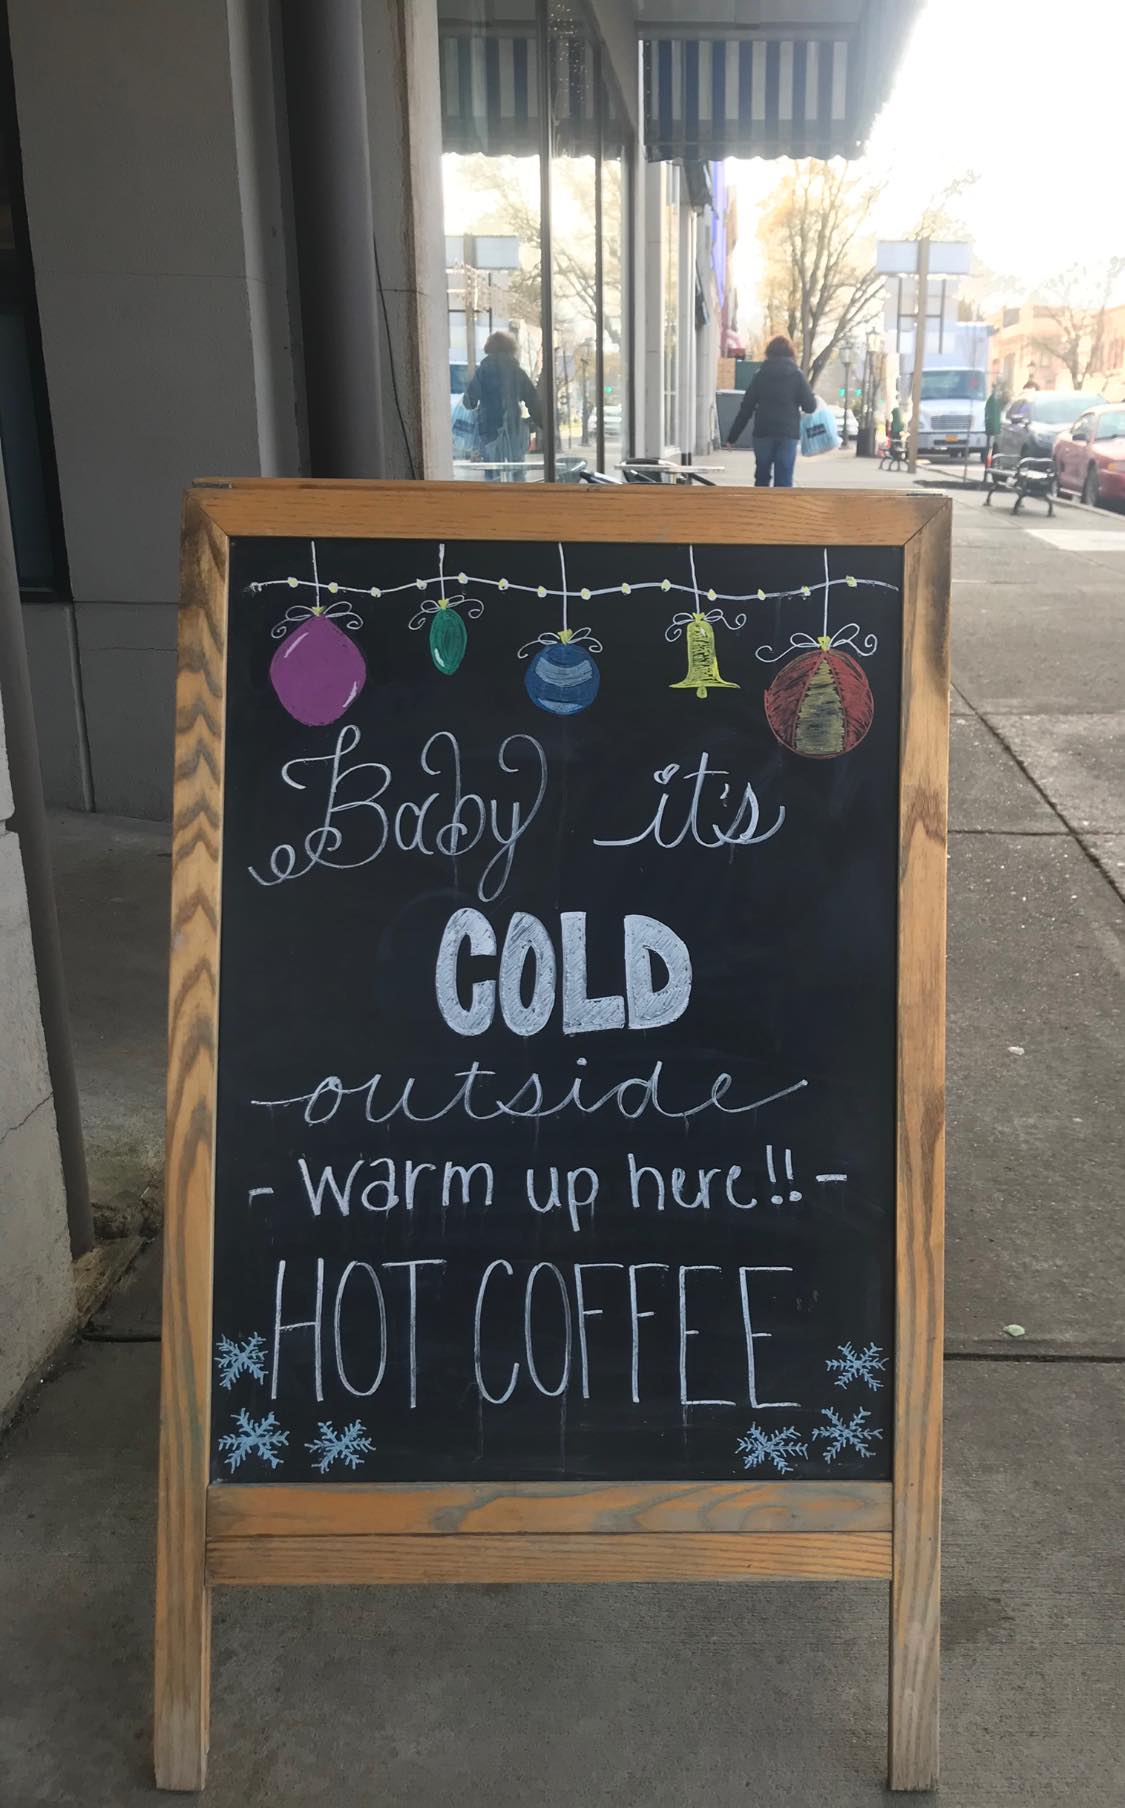 Baby it's
COLD
outside
- warm up here!! -
HOT COFFEE